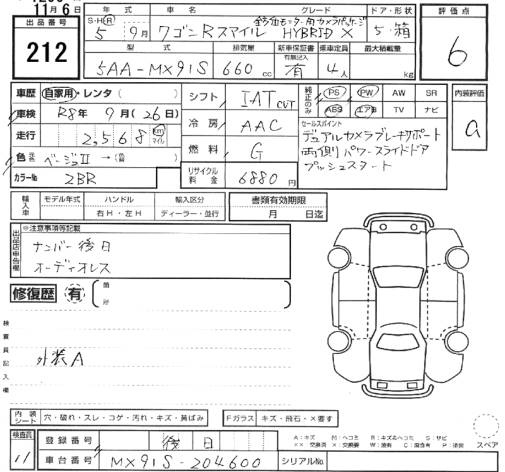 11月6日
出品番号
212
年式 車名 グレード ドア・形状 評価点
S・H・R 5年 9月 ワゴンRスマイル HYBRID X 5・箱 6
全方位モニター用カメラパッケージ
型式 排気量 新車保証書 有無記入 乗車定員 最大積載量
5AA-MX91S 660cc 有 4人 kg
車歴 自家用・レンタ( )
車検 R8年 9月(26日)
走行 2,568 km マイル
色 元色 ベージュII →(色 )
カラーNo 2BR
シフト IAT CVT
冷房 AAC
燃料 G
リサイクル料金 6880円
純正のみ PS PW AW SR
ABS エアB TV ナビ
内装評価
a
セールスポイント
デュアルカメラブレーキサポート
両側パワースライドドア
プッシュスタート
輸入車 モデル年式 ハンドル 輸入区分 書類有効期限
年 右H・左H ディーラー・並行 月 日迄
出品店申告欄
※注意事項等記載
ナンバー後日
オーディオレス
修復歴 有 箇所
検査員記入欄
外装A
内装シート 穴・破れ・スレ・コゲ・汚れ・キズ・黄ばみ Fガラス キズ・飛石・X要す
スペア
検査員 11
登録番号 後日
車台番号 MX91S-204600 シリアルNo.